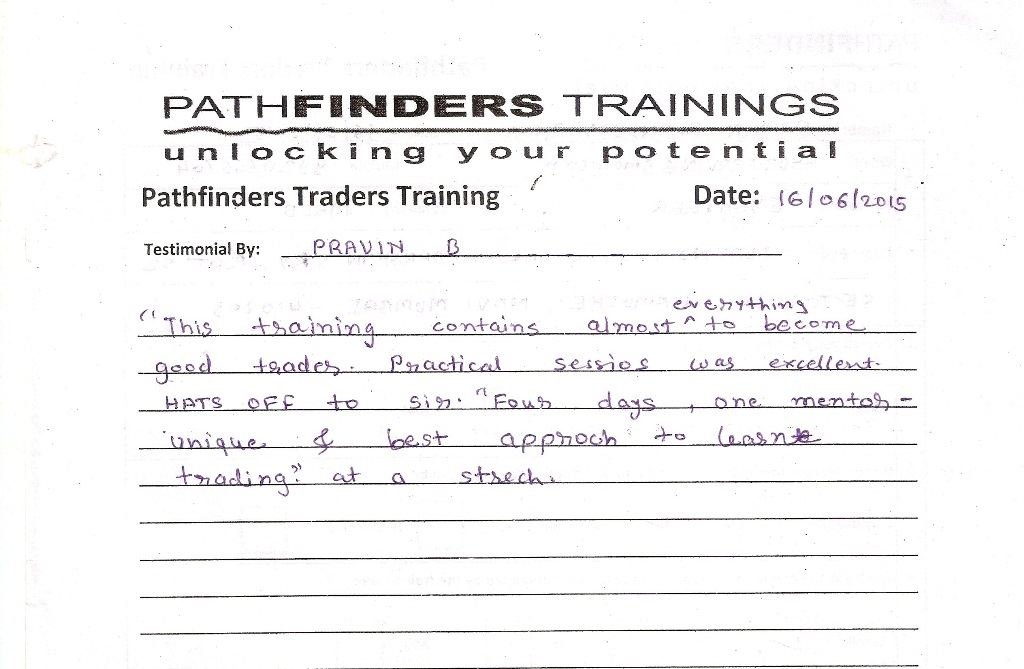 PATHFINDERS TRAININGS
unlocking your potential
Pathfinders Traders Training Date: 16/06/2015
Testimonial By: PRAVIN B
"This training contains almost ^ everything to become
good trader. Practical session was excellent.
HATS OFF to sir. "Four days, one mentor -
unique & best approch to learn
trading" at a strech.